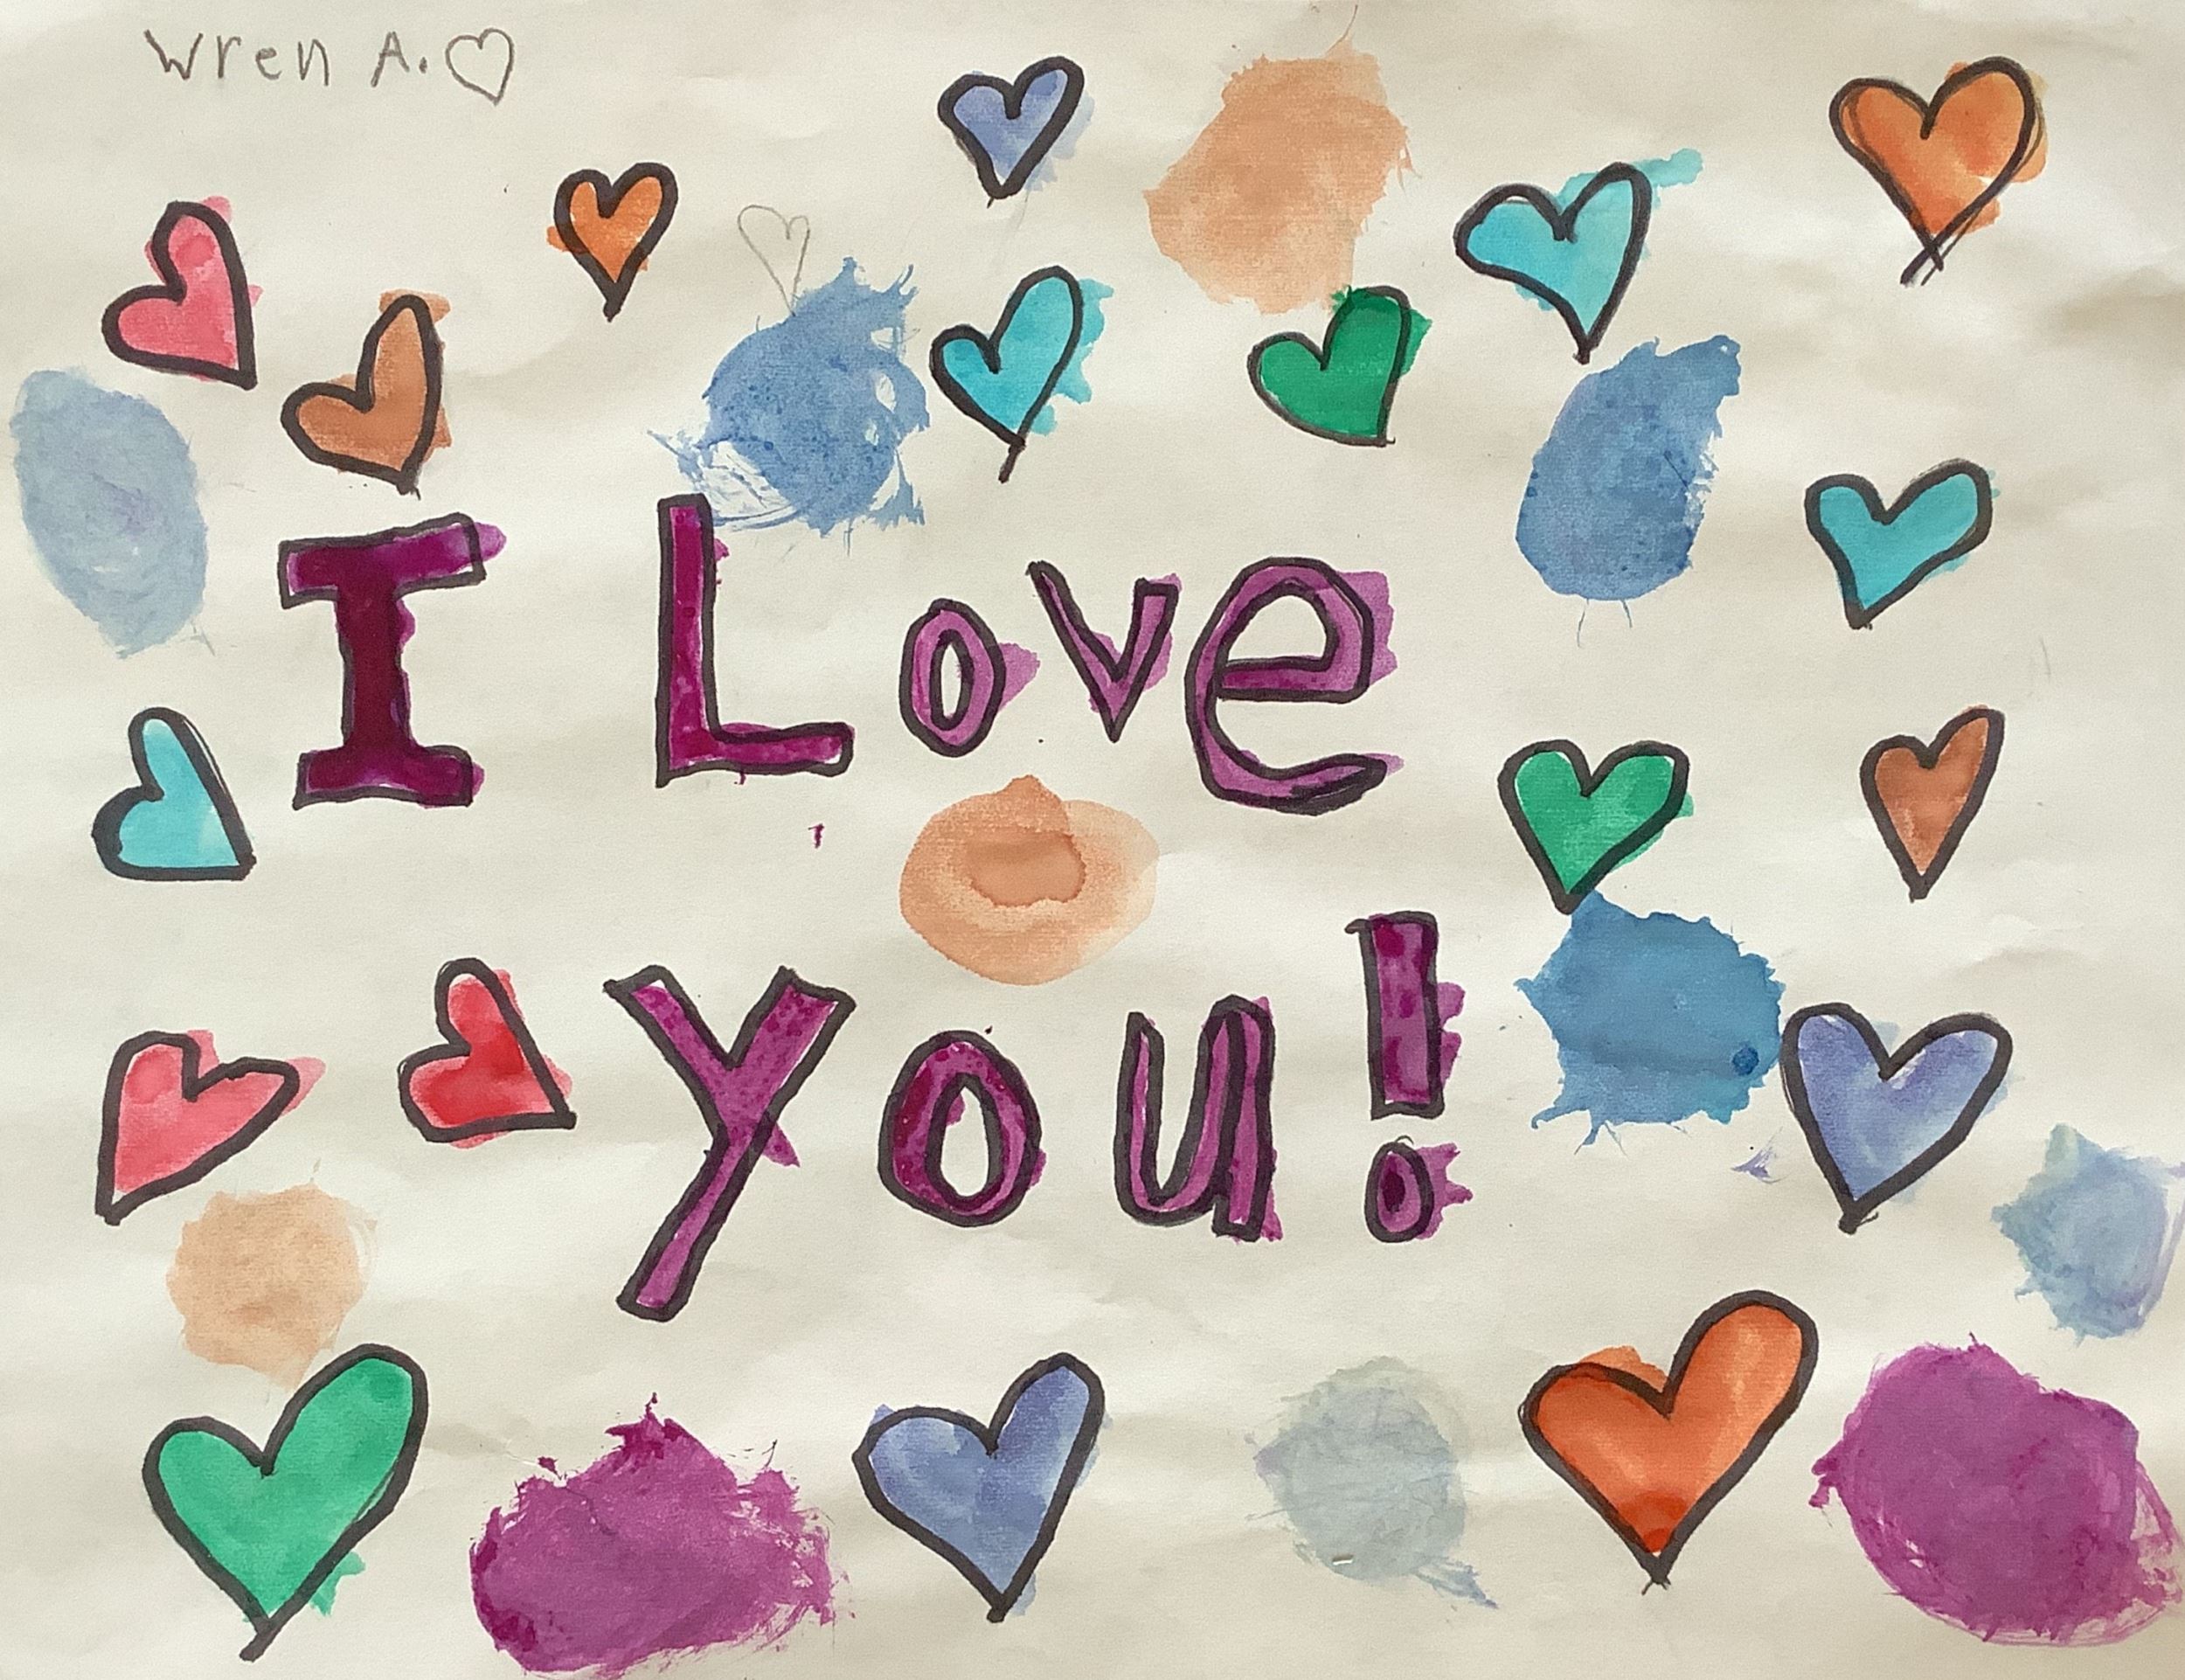 Wren A.
I Love
you!